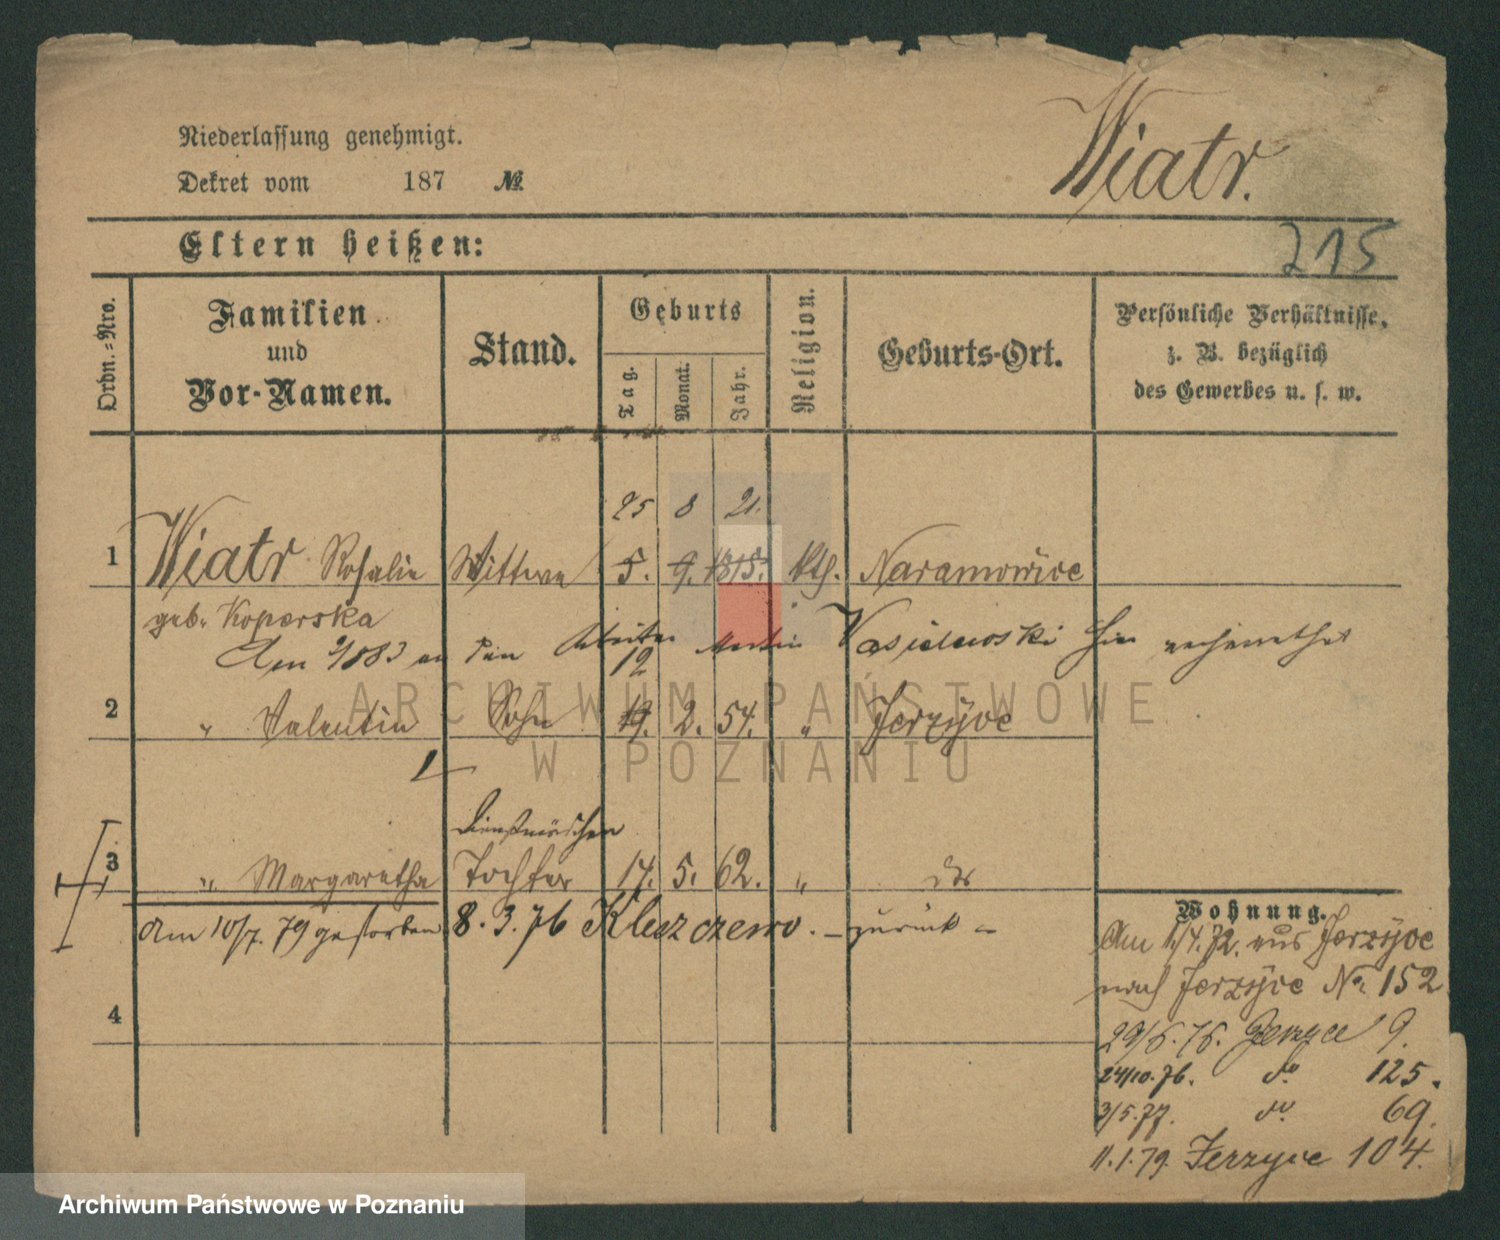 Niederlassung genehmigt.
Dekret vom 187 №
Wiatr.
Eltern heißen:
215
Ordn.-Nro.
Familien und Vor-Namen.
Stand.
Geburts
Tag.
Monat.
Jahr.
Religion.
Geburts-Ort.
Persönliche Verhältnisse,
z. B. bezüglich
des Gewerbes u. s. w.
25 8 21.
1 Wiatr Rosalie Wittwe 5. 9. 1815. kth. Naramowice
geb. Koperska
Am 9/883 an den Arbeiter Martin hier
12
2 " Valentin Sohn 19. 2. 54. " Jerzyce
Dienstmädchen
3 " Margaretha Tochter 17. 5. 62. " do
Am 10/7. 79 gestorben 8. 3. 76 Kluszczewo. – zurück –
4
Wohnung.
Am 1/4. 72. aus Jerzyce
nach Jerzyce No. 152
29/6. 76. Jerzyce 9.
24/10. 76. do 125.
3/5. 77. do 69.
11. 1. 79. Jerzyce 104.
ARCHIWUM PAŃSTWOWE
W POZNANIU
Archiwum Państwowe w Poznaniu